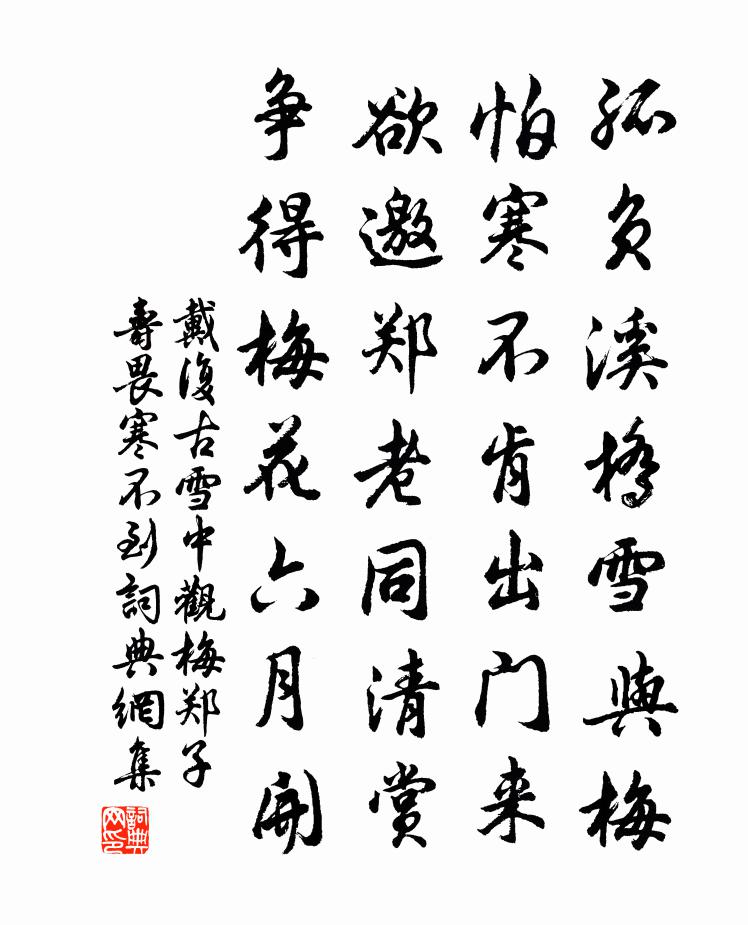 孤负溪橋雪與梅
怕寒不肯出门来
欲邀郑老同清赏
争得梅花六月開
戴復古雪中觀梅郑子
壽畏寒不到詞典網集
詞典
网印